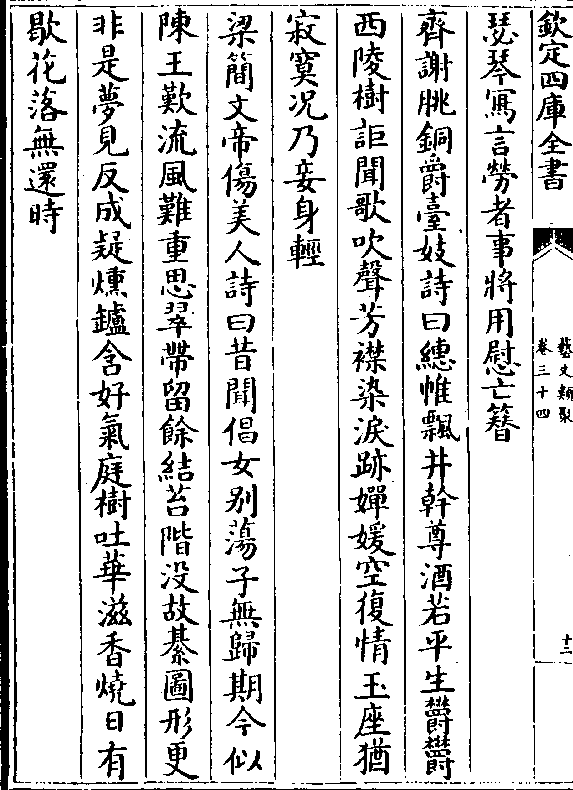 欽定四庫全書
藝文類聚
卷三十四
十二
瑟琴寫言勞者事將用慰亡簪
齊謝朓銅爵臺妓詩曰繐帷飄井幹尊酒若平生鬱鬱
西陵樹詎聞歌吹聲芳襟染淚跡嬋媛空復情玉座猶
寂寞況乃妾身輕
梁簡文帝傷美人詩曰昔聞倡女别蕩子無歸期今似
陳王歎流風難重思翠帶留餘結苔階没故綦圖形更
非是夢見反成疑燻鑪含好氣庭樹吐華滋香燒日有
歇花落無還時